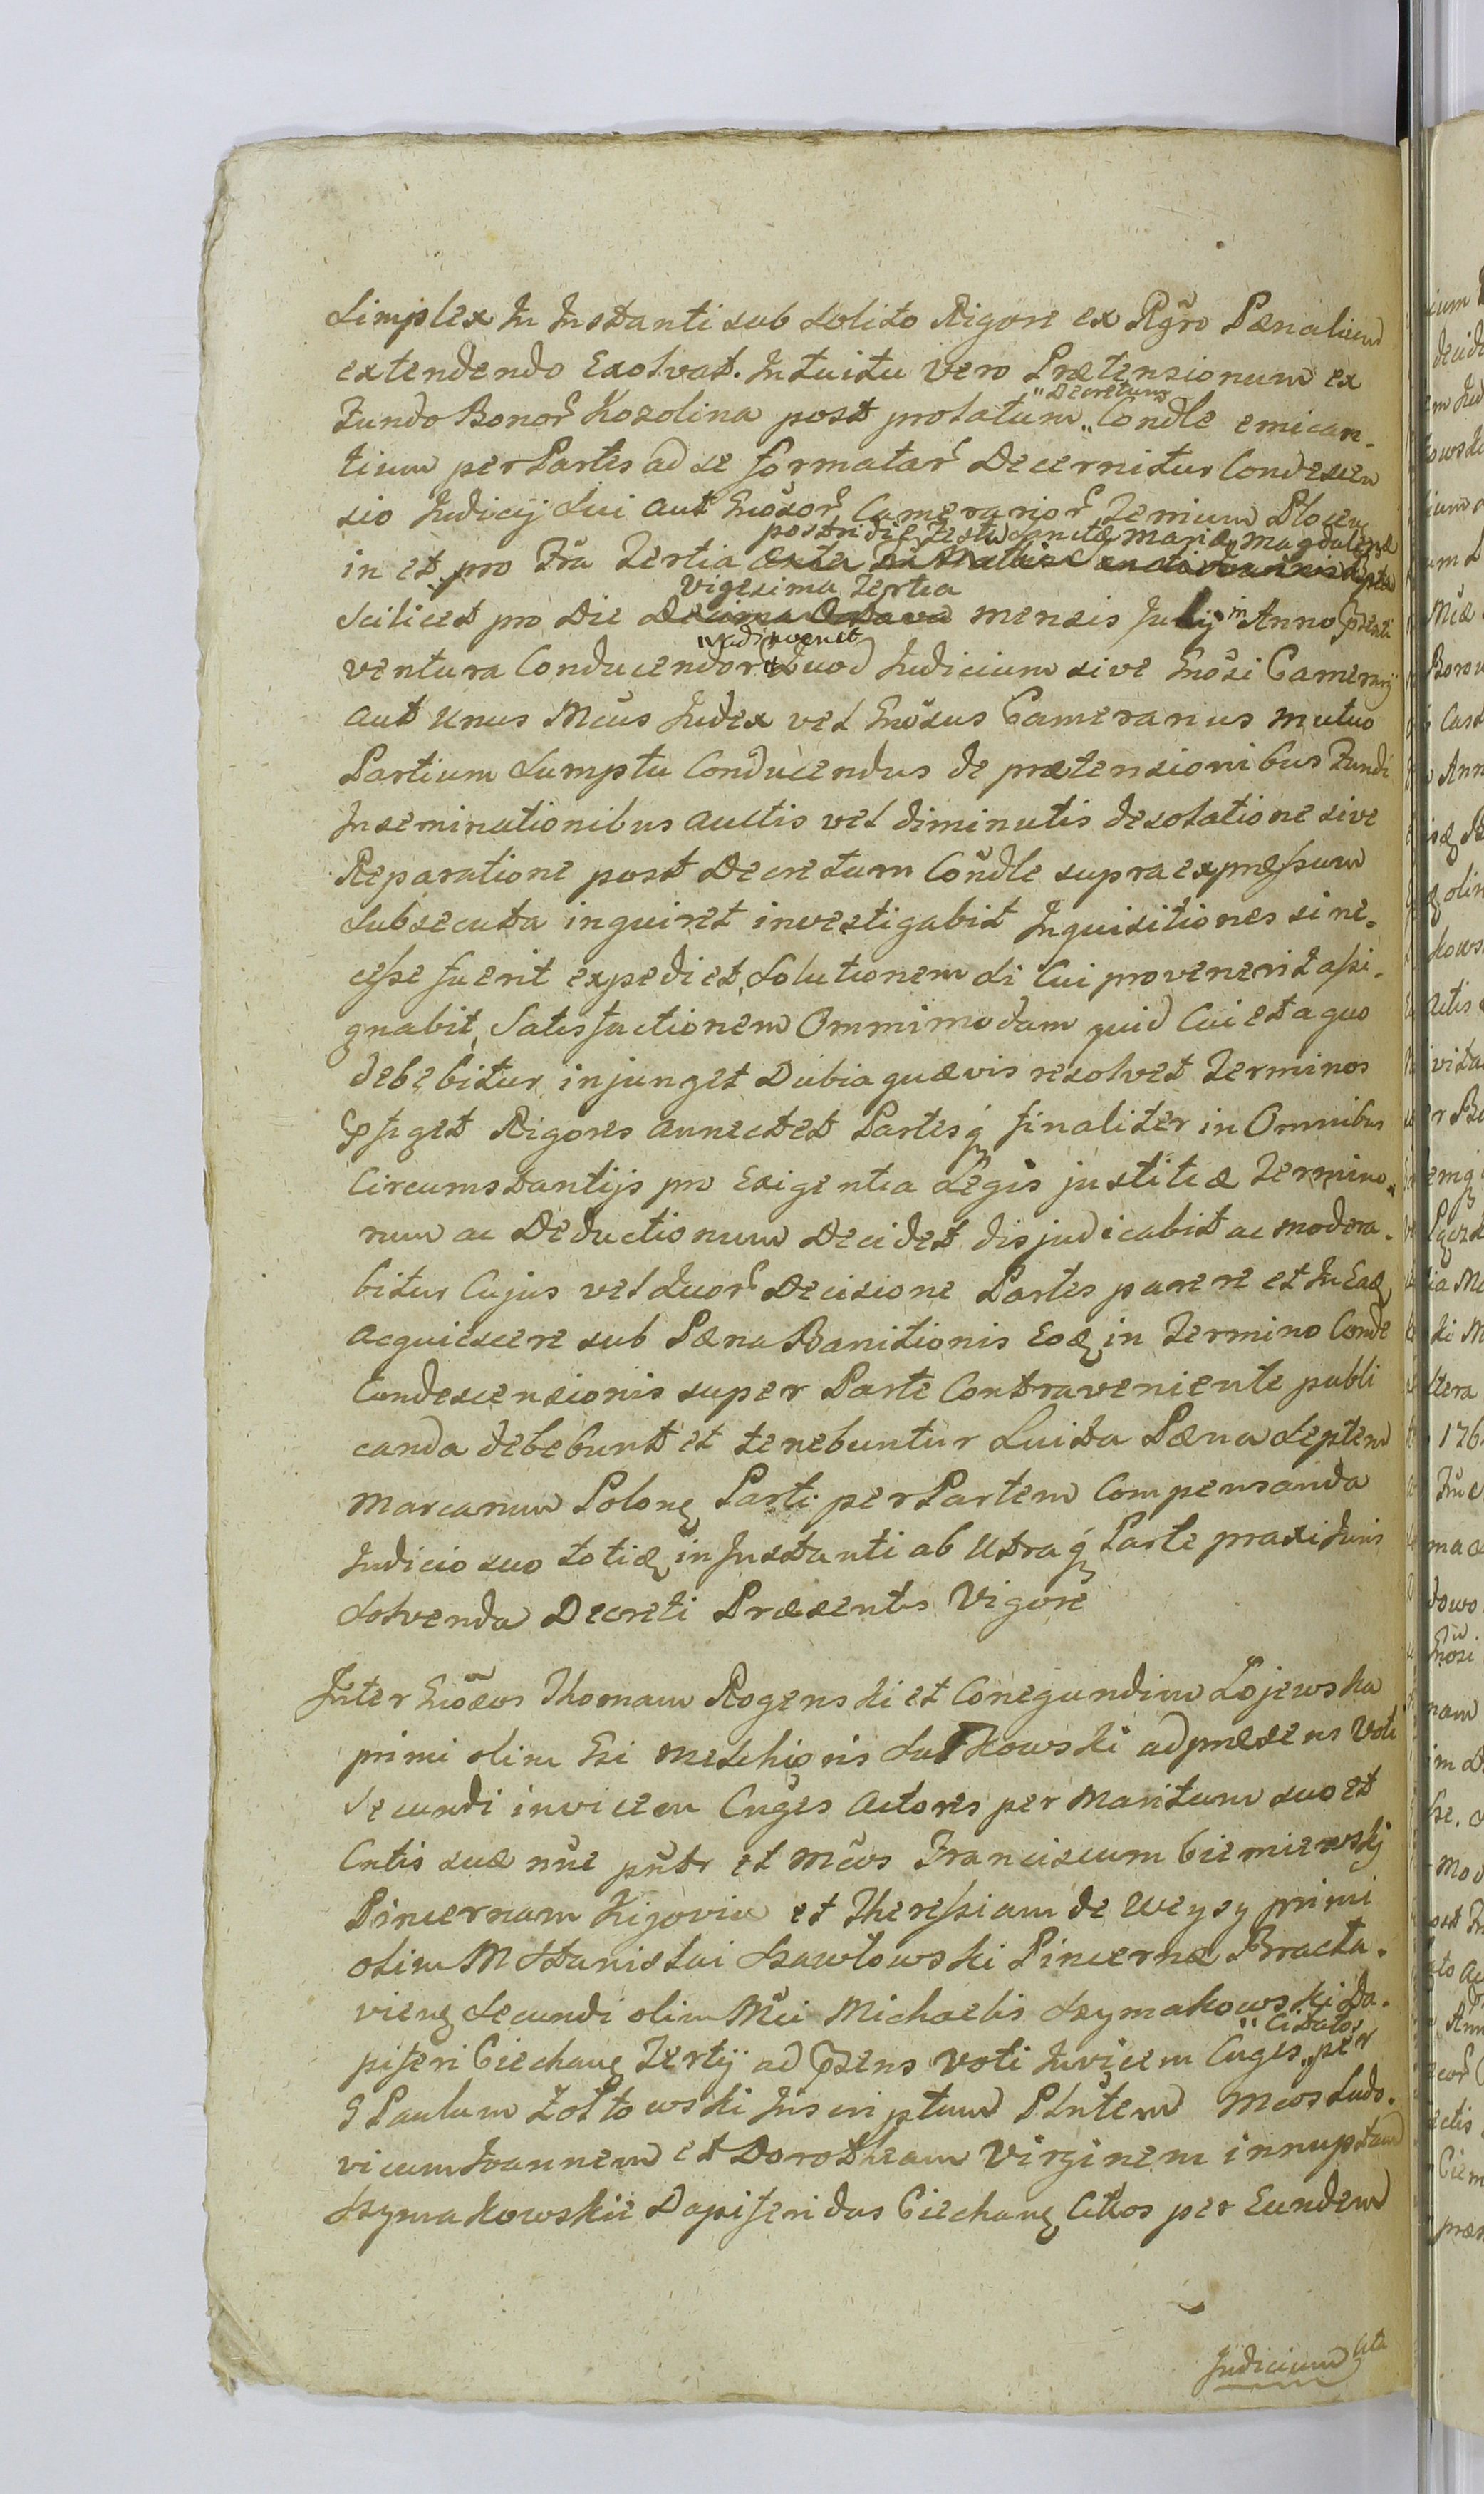 Simplex In Instanti sub solito Rigore ex Rgro Pænalium
extendendo Exolvat. Intuitu vero Prætensionum ex
"Decretum
Fundo Bonor Kozolina post prolatum „ Condle emican-
tium per Partes ad se formatar Decernitur Condescen
sio Judicij Sui aut Gnosor Camerarior Terrium Plocen
postridie Festu Sanctæ Mariæ Magdalenæ
in et pro Fra Tertia
Vigesima Tertia
Scilicet pro Die Decima Octava mensis Julij in Anno præsenti
ventura Conducendor Quod Judicium sive Gnosi Camerarij
aut Unus Mcus Judex vel Gnosus Camerarius mutuo
Partium Sumptu Conducendus de prætensionibus Fundi
Inseminationibus auctis vel diminutis desolatione sive
Reparatione post Decretum Condle supra expressum
Subsecuta inquiret investigabit Inquisitiones si ne-
cesse fuerit expediet, Solutionem Si Cui provenerit assi-
gnabit, Satisfactionem Ommimodam quid Cui et a quo
debebitur injunget Dubia quævis resolvet Terminos
præfiget Rigores annectet Partesq finaliter in Omnibus
Circumstantijs pro Exigentia Legis justitiæ Termino-
rum ac Deductionum Decidet disjudicabit ac modera-
bitur Cujus vel Quor Decisione Partes parere et In Eaq
acquiescere sub Pæna Banitionis Eoq in Termino Conde
Condescensionis super Parte Contraveniente publi
canda debebunt et tenebuntur Luita Pæna Septem
Marcarum Polonq Parti per Partem Compensanda
Judicio suo totiq in Instanti ab Utraq Parte praxi Juris
Solvenda Decreti Præsentis Vigore
Inter Gnosws Thomam Rogenski et Conegundim Łojewska
primi olim Gsi Melchioris Sutkowski ad præsens Voti
Secundi invicem Cnges Actores per Maritum suo et
Cntis suæ nne pntr et Mcws Franciscum Ciemiewskj
Pincernam Kijoviæ et Theressiam de Weysy primi
olim M Stanislai Szawlowski Pincernæ Bracta-
vienq Secundi olim Mci Michaelis Szymakowski Da-
"Citatos
piferi Ciechanq Tertij ad præsens Voti Invicem Cnges „ per
G Paulum Zołtowski Inscriptum Plntem Mcws Ludo-
vicum Joannem et Dorotheam Virginem innuptam
Szymakowskie Dapiferidas Ciechanq Cittos per Eundem
Judicium